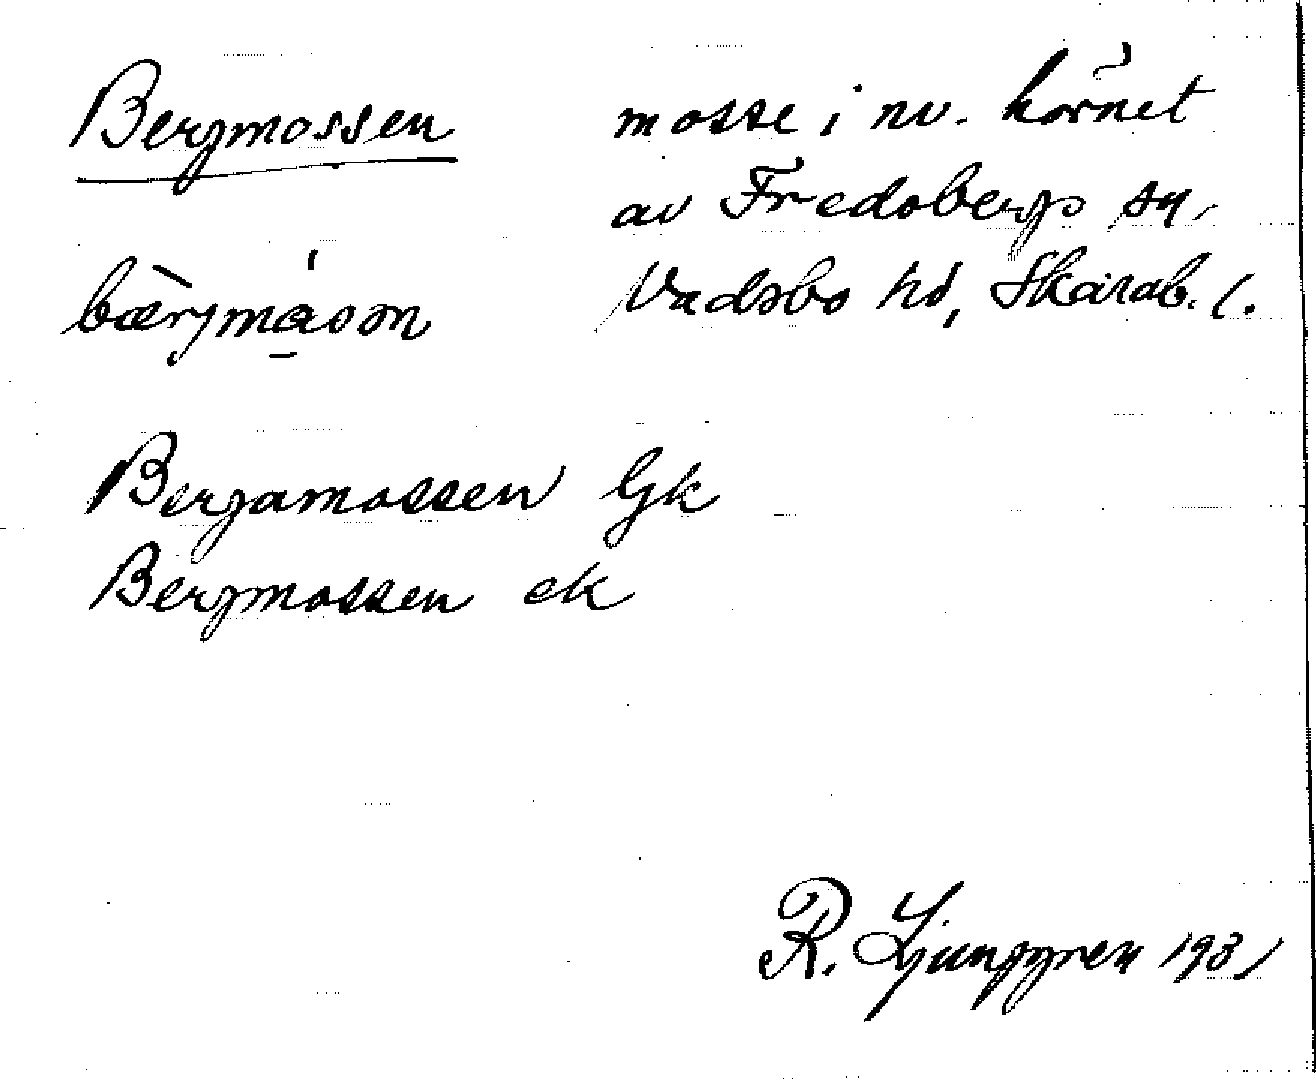 Bergmossen
mosse i nv. hörnet
av Fredsbergs sn,
Vadsbo hd, Skarab. l.
bærjmåson
Bergamossen Gk
Bergmossen ek
R. Ljunggren 1931